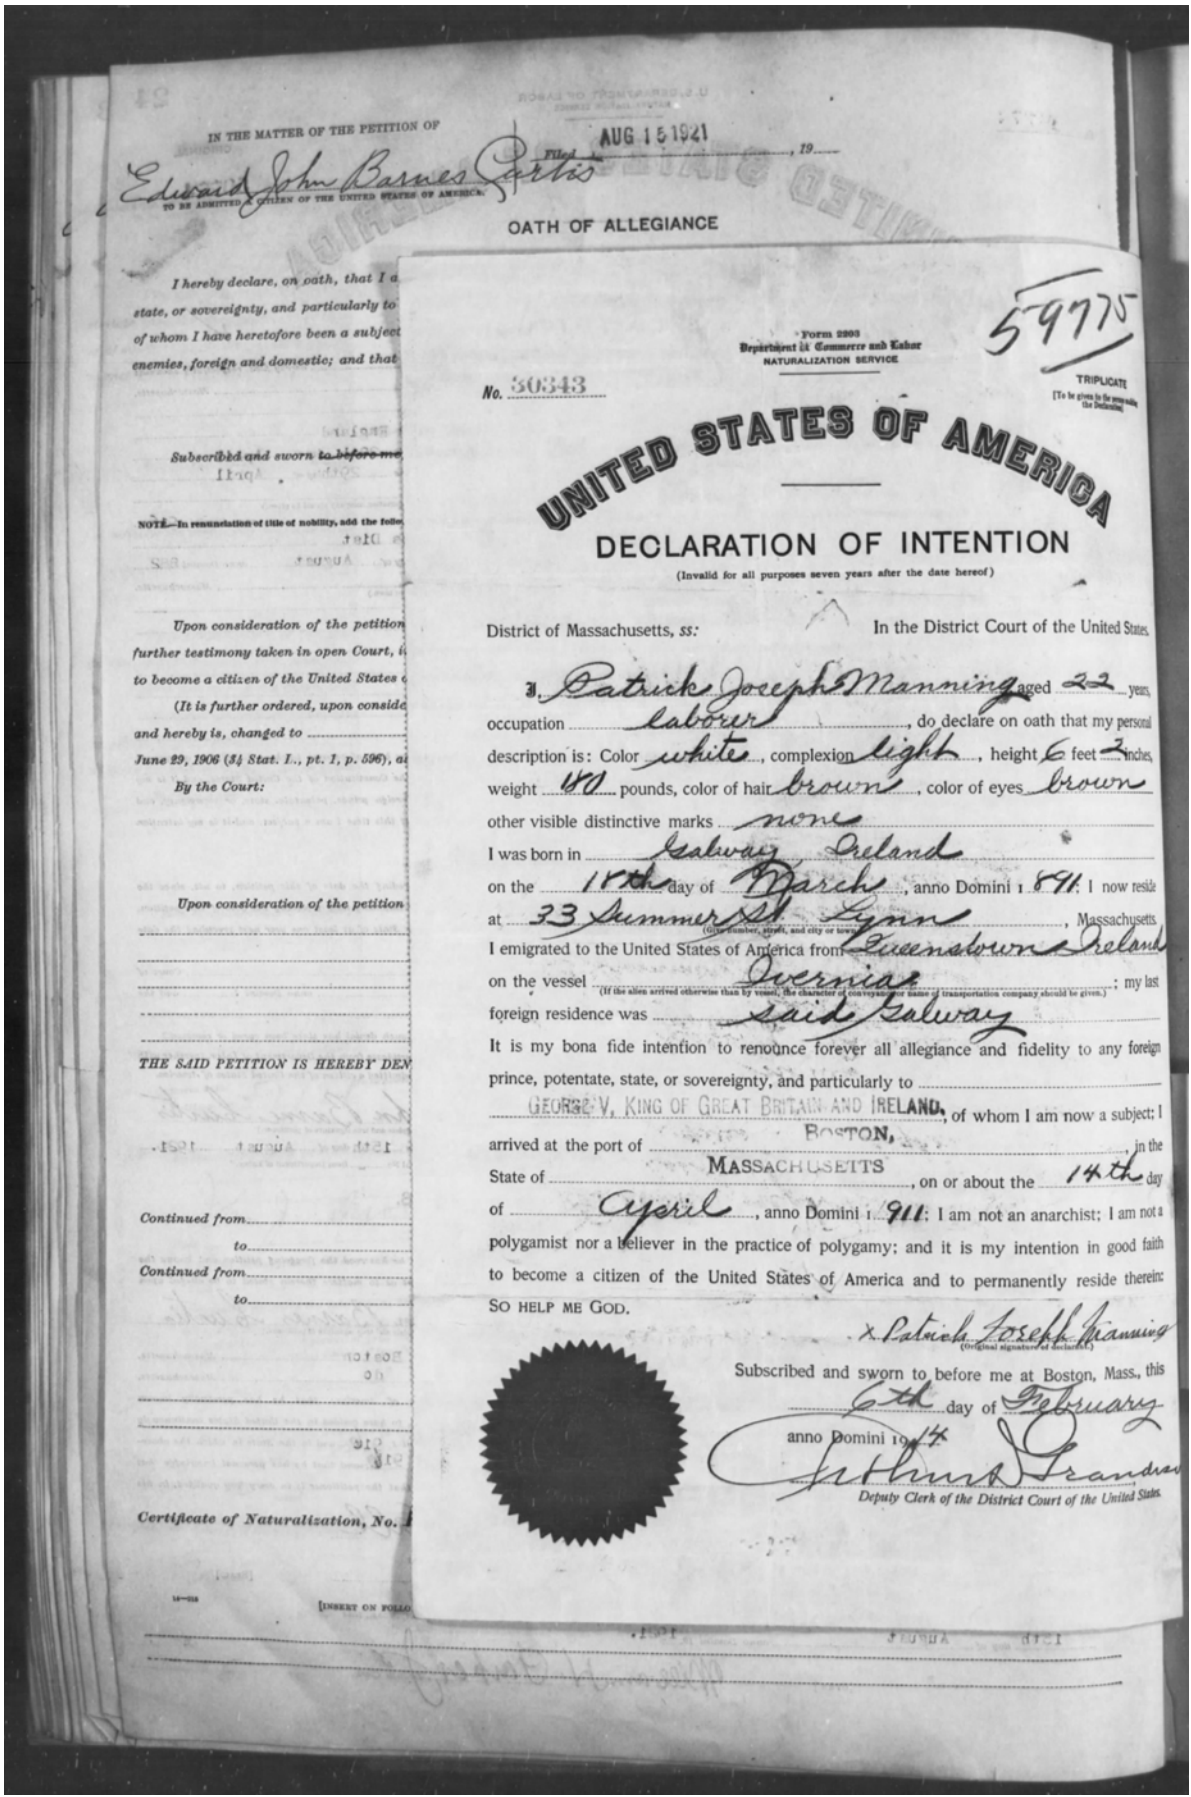 IN THE MATTER OF THE PETITION OF
Edward John Barnes Curtis
TO BE ADMITTED A CITIZEN OF THE UNITED STATES OF AMERICA.
Filed AUG 15 1921, 19
OATH OF ALLEGIANCE
I hereby declare, on oath, that I a
state, or sovereignty, and particularly to
of whom I have heretofore been a subject
enemies, foreign and domestic; and that
Subscribed and sworn to before me
NOTE.—In renunciation of title of nobility, add the follow
Upon consideration of the petition
further testimony taken in open Court, i
to become a citizen of the United States
(It is further ordered, upon conside
and hereby is, changed to
June 29, 1906 (34 Stat. L., pt. 1, p. 596), a
By the Court:
Upon consideration of the petition
THE SAID PETITION IS HEREBY DEN
Continued from
to
Continued from
to
Certificate of Naturalization, No.
[INSERT ON FOLLO
59775
Form 2203
Department of Commerce and Labor
NATURALIZATION SERVICE
No. 30343
TRIPLICATE
[To be given to the person making the Declaration]
UNITED STATES OF AMERICA
DECLARATION OF INTENTION
(Invalid for all purposes seven years after the date hereof)
District of Massachusetts, ss: In the District Court of the United States.
I, Patrick Joseph Manning, aged 22 years,
occupation laborer, do declare on oath that my personal
description is: Color white, complexion light, height 6 feet 2 inches,
weight 180 pounds, color of hair brown, color of eyes brown
other visible distinctive marks none
I was born in Galway, Ireland
on the 18th day of March, anno Domini 1891; I now reside
at 33 Summer St. Lynn, Massachusetts.
(Give number, street, and city or town.)
I emigrated to the United States of America from Queenstown Ireland
on the vessel Ivernia; my last
(If the alien arrived otherwise than by vessel, the character of conveyance or name of transportation company should be given.)
foreign residence was said Galway
It is my bona fide intention to renounce forever all allegiance and fidelity to any foreign
prince, potentate, state, or sovereignty, and particularly to
GEORGE V, KING OF GREAT BRITAIN AND IRELAND, of whom I am now a subject; I
arrived at the port of BOSTON, in the
State of MASSACHUSETTS, on or about the 14th day
of April, anno Domini 1911; I am not an anarchist; I am not a
polygamist nor a believer in the practice of polygamy; and it is my intention in good faith
to become a citizen of the United States of America and to permanently reside therein:
SO HELP ME GOD.
x Patrick Joseph Manning
(Original signature of declarant.)
Subscribed and sworn to before me at Boston, Mass., this
6th day of February
anno Domini 1914
Deputy Clerk of the District Court of the United States.